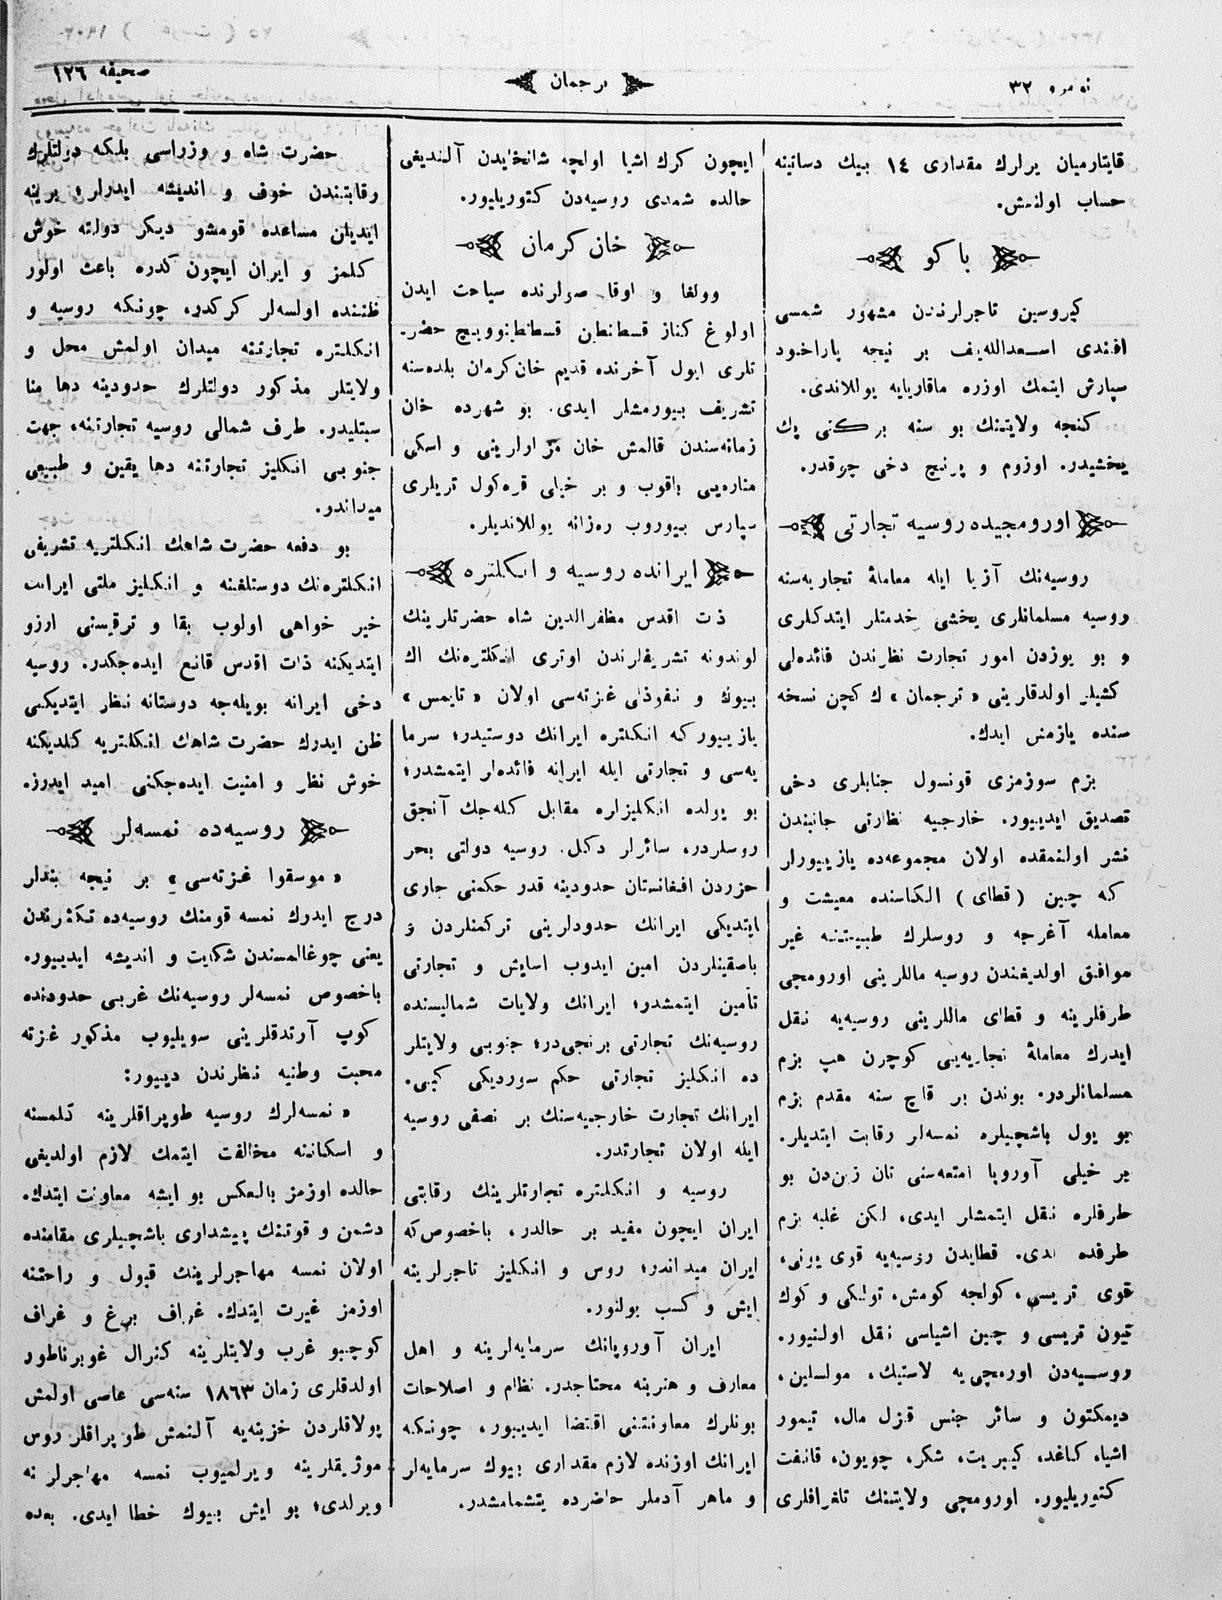 نومرو ٣٢
ترجمان
صحيفه ١٢٦
قايتارميان يرلرك مقداری ١٤ بيك دساتينه
حساب اولنمش.
باكو
كيروسين تاجرلرندن مشهور شمسی
افندی اسعدالله‌يف بر نيجه پاراخود
سپارش ايتمك اوزره ماقاريايه يوللاندی.
كنجه ولايتنك بو سنه بركنی پك
يخشيدر. اوزوم و پرنج دخی چوقدر.
اورومجيده روسيه تجارتی
روسيه‌نك آزيا ايله معاملۀ تجاريه‌سنه
روسيه مسلمانلری يخشی خدمتلر ايتدكلری
و بو يوزدن امور تجارت نظرندن فائده‌لی
كشيلر اولدقارينی «ترجمان» ك كچن نسخه
سنده يازمش ايدك.
بزم سوزمزی قونسول جنابلری دخی
تصديق ايدييور. خارجيه نظارتی جانبندن
نشر اولنمقده اولان مجموعه‌ده يازييورلر
كه چين (قطای) الكاسنده معيشت و
معامله آغرجه و روسلرك طبيعتنه غير
موافق اولديغندن روسيه ماللرينی اورومچی
طرفلرينه و قطای ماللرينی روسيه‌يه نقل
ايدرك معاملۀ تجاريه‌يی كوچرن هپ بزم
مسلمانلردر. بوندن بر قاچ سنه مقدم بزم
بو يول باشچيلره نمسه‌لر رقابت ايتديلر.
بر خيلی آوروپا امتعه‌سنی تان زن‌دن بو
طرفلره نقل ايتمشلر ايدی، لكن غلبه بزم
طرفده ايدی. قطايدن روسيه‌يه قوی يونی،
قوی تريسی، كولجه كومش، تولكی و كوك
تيون تريسی و چين اشياسی نقل اولنيور.
روسيه‌دن اورومچی‌يه لاستيك، موسلين،
ديمكتون و سائر جنس قزل مال، تيمور
اشيا، كاغد، كيبريت، شكر، چويون، قانفت
كتوريليور. اورومچی ولايتنك تلغرافلری
ايچون كرك اشيا اولچه شانخايدن آلنديغی
حالده شمدی روسيه‌دن كتوريليور.
خان كرمان
وولغا و اوقا صولرنده سياحت ايدن
اولوغ كناز قسطنطين قسطنطينوويچ حضر-
تلری ايول آخرنده قديم خان‌كرمان بلده‌سنه
تشريف بيورمشلر ايدی. بو شهرده خان
زمانه‌سندن قالمش خان مزارلرينی و اسكی
مناره‌يی باقوب و بر خيلی قره‌كول تريلری
سپارس بيوروب ره‌زانه يوللانديلر.
ايرانده روسيه و انكلتره
ذت اقدس مظفرالدين شاه حضرتلرينك
لوندونه تشريفلرندن اوتری انكلتره‌نك اك
بيوك و نفوذلی غزته‌سی اولان «تايمس»
يازييوركه انكلتره ايرانك دوستيدر؛ سرما
يه‌سی و تجارتی ايله ايرانه فائده‌لر ايتمشدر؛
بو يولده انكليزلره مقابل كله‌جك آنجق
روسلردر، سائرلر دكل. روسيه دولتی بحر
حزردن افغانستان حدودينه قدر حكمنی جاری
ايتديكی ايرانك حدودلرينی تركمنلردن و
باصقينلردن امين ايدوب اسايش و تجارتی
تأمين ايتمشدو؛ ايرانك ولايات شماليسنده
روسيه‌نك تجارتی برنجی‌در؛ جنوبی ولايتلر
ده انكليز تجارتی حكم سورديكی كيبی.
ايرانك تجارت خارجيه‌سنك بر نصفی روسيه
ايله اولان تجارتدر.
روسيه و انكلتره تجارتلرينك رقابتی
ايران ايچون مفيد بر حالدر، باخصوص‌كه
ايران ميداندر؛ روس و انكليز تاجرلرينه
ايش و كسب بولنور.
ايران آوروپانك سرمايه‌لرينه و اهل
معارف و هنرينه محتاجدر. نظام و اصلاحات
بونلرك معاونتنی اقتضا ايدييور، چونكه
ايرانك اوزنده لازم مقداری بيوك سرمايه‌لر
و ماهر آدملر حاضرده يتشمامشدر.
حضرت شاه و وزراسی بلكه دولتلرك
رقابتندن خوف و انديشه ايدرلر؛ برينه
ايديلن مساعده قومشو ديكر دولته خوش
كلمز و ايران ايچون كدره باعث اولور
ظننده اولسه‌لر كركدر، چونكه روسيه و
انكلتره تجارتنه ميدان اولمش محل و
ولايتلر مذكور دولتلرك حدودينه دها منا
سبتليدر. طرف شمالی روسيه تجارتنه، جهت
جنوبی انكليز تجارتنه دها يقين و طبيعی
ميداندو.
بو دفعه حضرت شاهك انكلتريه تشريفی
انكلتره‌نك دوستلغنه و انكليز ملتی ايرانك
خير خواهی اولوب بقا و ترقيسنی ارزو
ايتديكنه ذات اقدس قانع ايده‌جكدر. روسيه
دخی ايرانه بويله‌جه دوستانه نظر ايتديكنی
ظن ايدرك حضرت شاهك انكلتريه كلديكنه
خوش نظر و امنيت ايده‌جكنی اميد ايدرزه
روسيه‌ده نمسه‌لر
«موسقوا غزته‌سی» بر نيجه بندلر
درج ايدرك نمسه قومنك روسيه‌ده تكثرندن
يعنی چوغالمسندن شكايت و انديشه ايدييور.
باخصوص نمسه‌لر روسيه‌نك غربی حدودنده
كوپ آرتدقلرينی سويليوب مذكور غزته
محبت وطنيه نظرندن دييور:
«نمسه‌لرك روسيه طوپراقلرينه كلمسنه
و اسكاننه مخالفت ايتمك لازم اولديغی
حالده اوزمز بالعكس بو ايشه معاونت ايتدك.
دشمن و قوتنك پيشداری باشچيلری مقامنده
اولان نمسه مهاجرلرينك قبول و راحتنه
اوزمز غيرت ايتدك. غراف برغ و غراف
كوچبو غرب ولايتلرينه كنرال غوبرناطور
اولدقلری زمان ١٨٦٣ سنه‌سی عاصی اولمش
پولاقلردن خزينه‌يه آلنمش طوپراقلر روس
موژيقلرينه ويرلميوب نمسه مهاجرلرنه
ويرلدی؛ بو ايش بيوك خطا ايدی. بعده